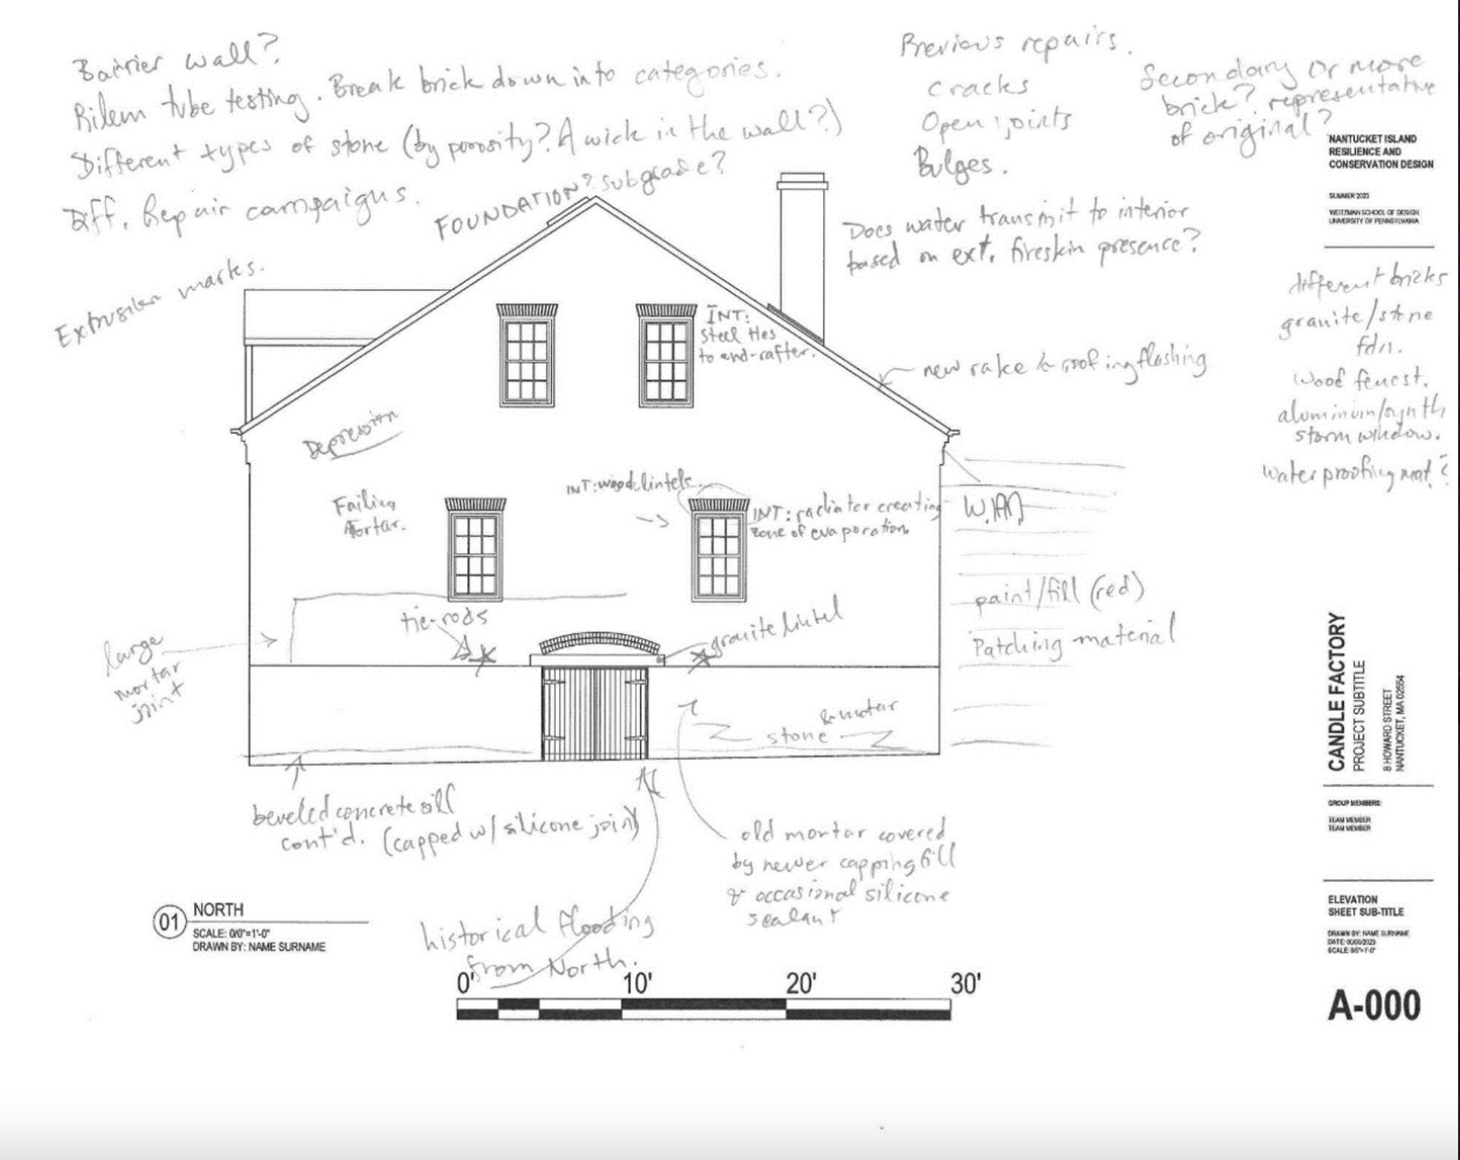 Barrier wall?
Rilem tube testing. Break brick down into categories.
Different types of stone (by porosity? A wick in the wall?)
Diff. Repair campaigns.
FOUNDATION? subgrade?
Extrusion marks.
Previous repairs.
Cracks
Open joints
Bulges.
Secondary or more
brick? representative
of original?
Does water transmit to interior
based on ext. fireskin presence?
NANTUCKET ISLAND
RESILIENCE AND
CONSERVATION DESIGN
SUMMER 2023
WEITZMAN SCHOOL OF DESIGN
UNIVERSITY OF PENNSYLVANIA
different bricks
granite/stone
fdn.
wood fenest.
aluminum/synth
storm window.
waterproofing mat.?
INT:
steel ties
to end-rafter.
new rake & roofing flashing
Depression
Failing
Mortar.
INT: wood lintels
INT: radiator creating
zone of evaporation
paint/fill (red)
Patching material
tie-rods
granite lintel
large
mortar
joint
& mortar
stone
beveled concrete sill
cont'd. (capped w/ silicone joint)
old mortar covered
by newer capping fill
& occasional silicone
sealant
historical flooding
from North.
01
NORTH
SCALE: 0/0"=1'-0"
DRAWN BY: NAME SURNAME
0' 10' 20' 30'
CANDLE FACTORY
PROJECT SUBTITLE
8 HOWARD STREET
NANTUCKET, MA 02554
GROUP MEMBERS:
TEAM MEMBER
TEAM MEMBER
ELEVATION
SHEET SUB-TITLE
DRAWN BY: NAME SURNAME
DATE: 00/00/2023
SCALE: 0/0"=1'-0"
A-000